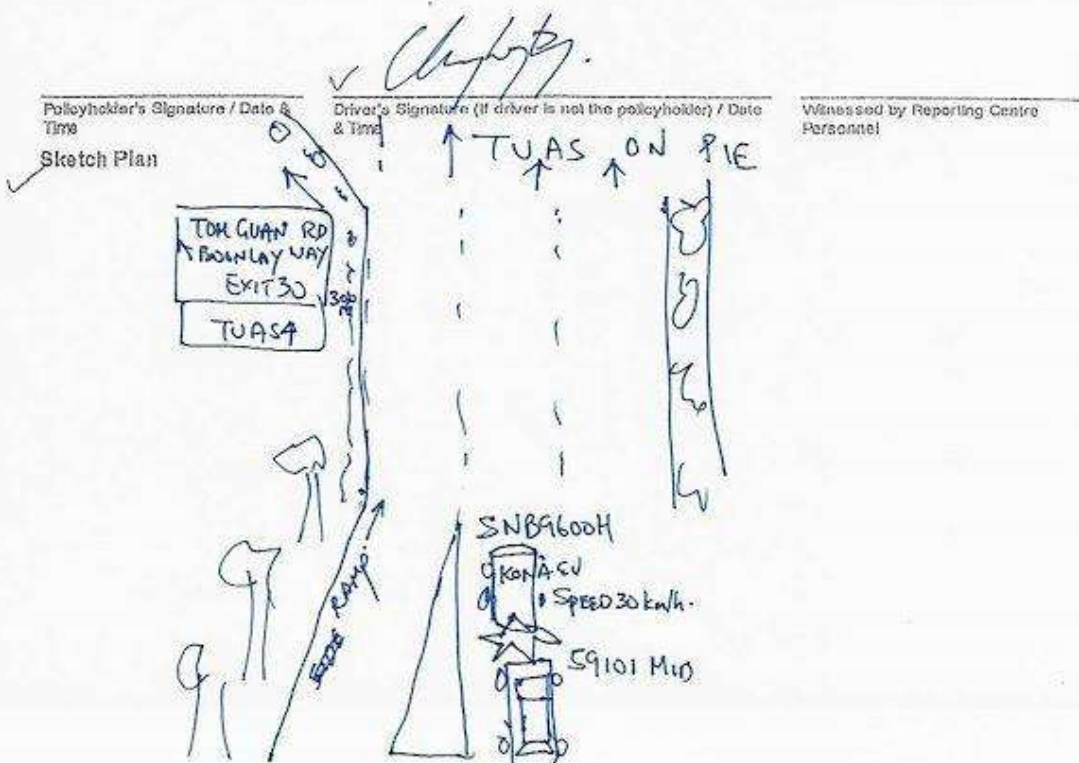 Policyholder's Signature / Date & Time
Driver's Signature (if driver is not the policyholder) / Date & Time
Witnessed by Reporting Centre Personnel
Sketch Plan
TUAS ON PIE
TOH GUAN RD
BOONLAY WAY
EXIT 30
300
TUAS4
SNB9600H
KONA EV
SPEED 30 km/h.
RAMP
59101 MID